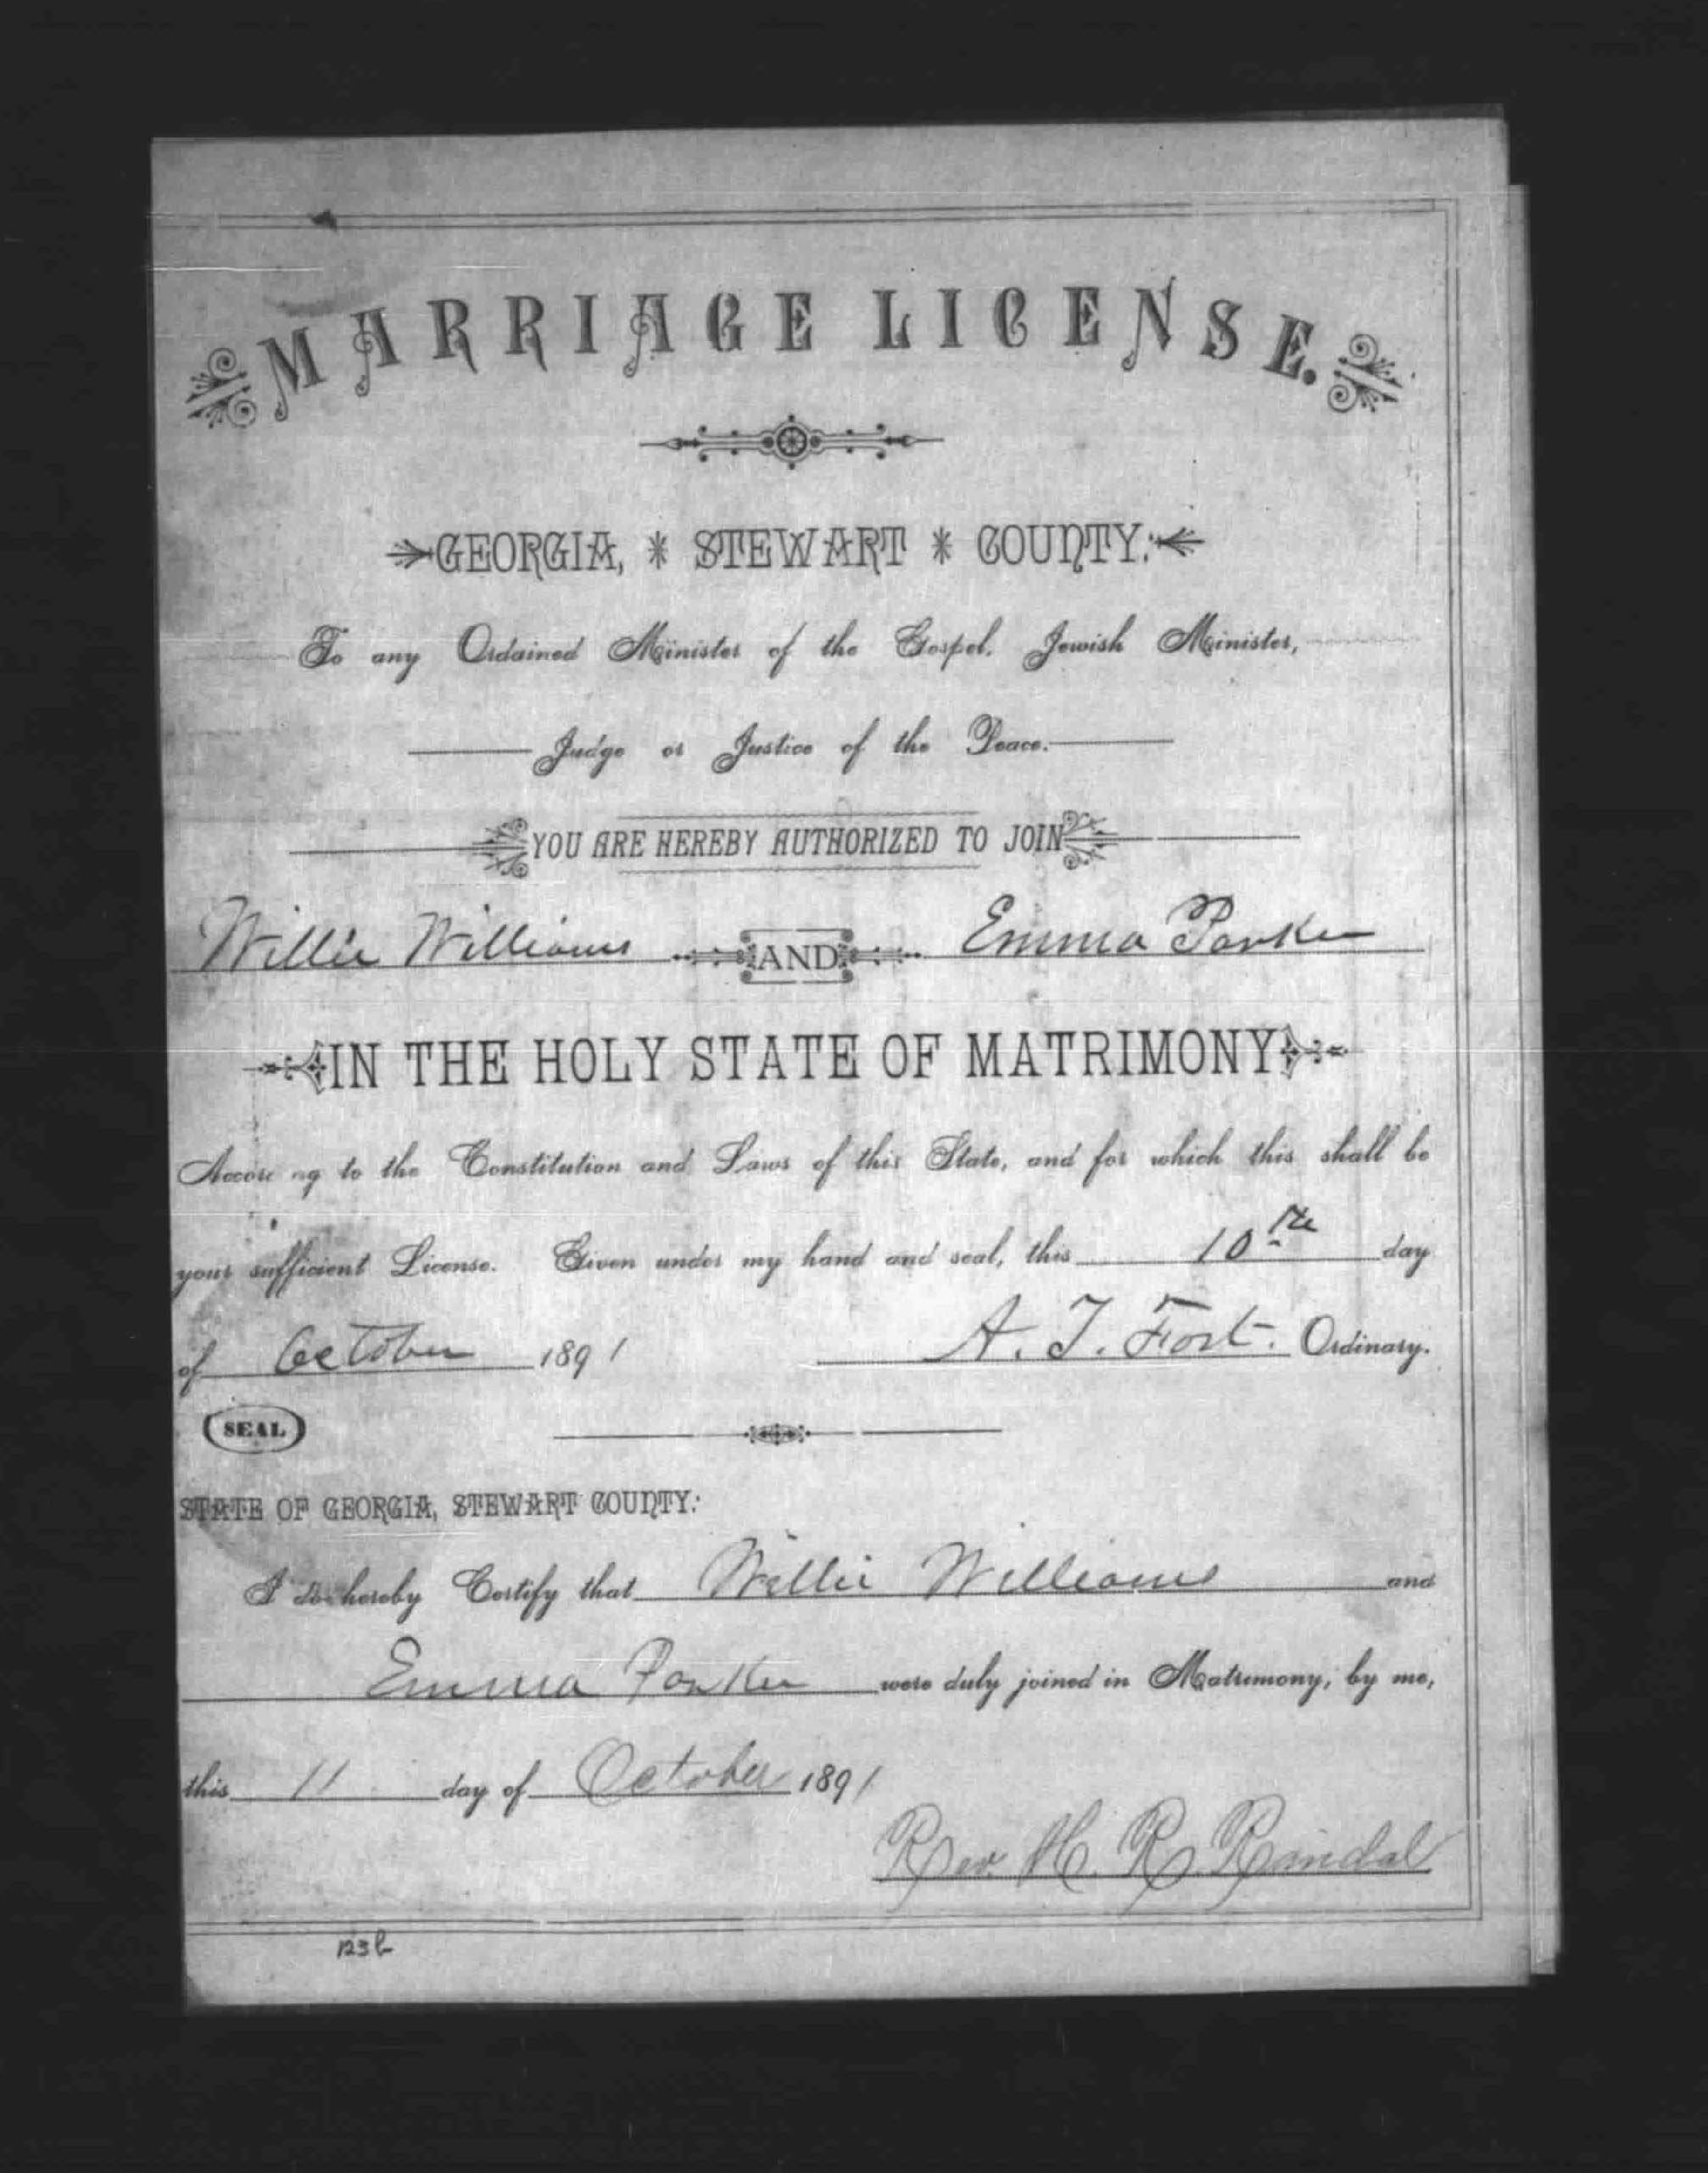 MARRIAGE LICENSE.
GEORGIA, * STEWART * COUNTY:
To any Ordained Minister of the Gospel, Jewish Minister,
Judge or Justice of the Peace:
YOU ARE HEREBY AUTHORIZED TO JOIN
Willie Williams AND Emma Parker
IN THE HOLY STATE OF MATRIMONY
According to the Constitution and Laws of this State, and for which this shall be
your sufficient License. Given under my hand and seal, this 10th day
of October 1891 A. T. Fort. Ordinary.
SEAL
STATE OF GEORGIA, STEWART COUNTY:
I do hereby Certify that Willie Williams and
Emma Parker were duly joined in Matrimony, by me,
this 11 day of October 1891
Rev. H. R.